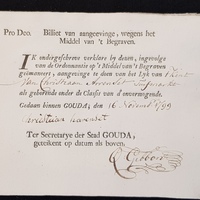 Pro Deo. Billiet van aangeevinge, wegens het
Middel van 't Begraven.
IK ondergeschreve verklare by deezen, ingevolge
van de Ordonnantie op 't Middel van 't Begraven
geëmaneert, aangevinge te doen van het Lyk van 't kind
van Christiaan
als gehorende onder de Classis van d'onvermogende.
Gedaan binnen GOUDA, den 16 Novemb 1799
Christiaan
Ter Secretarye der Stad GOUDA,
geteikent op datum als boven.